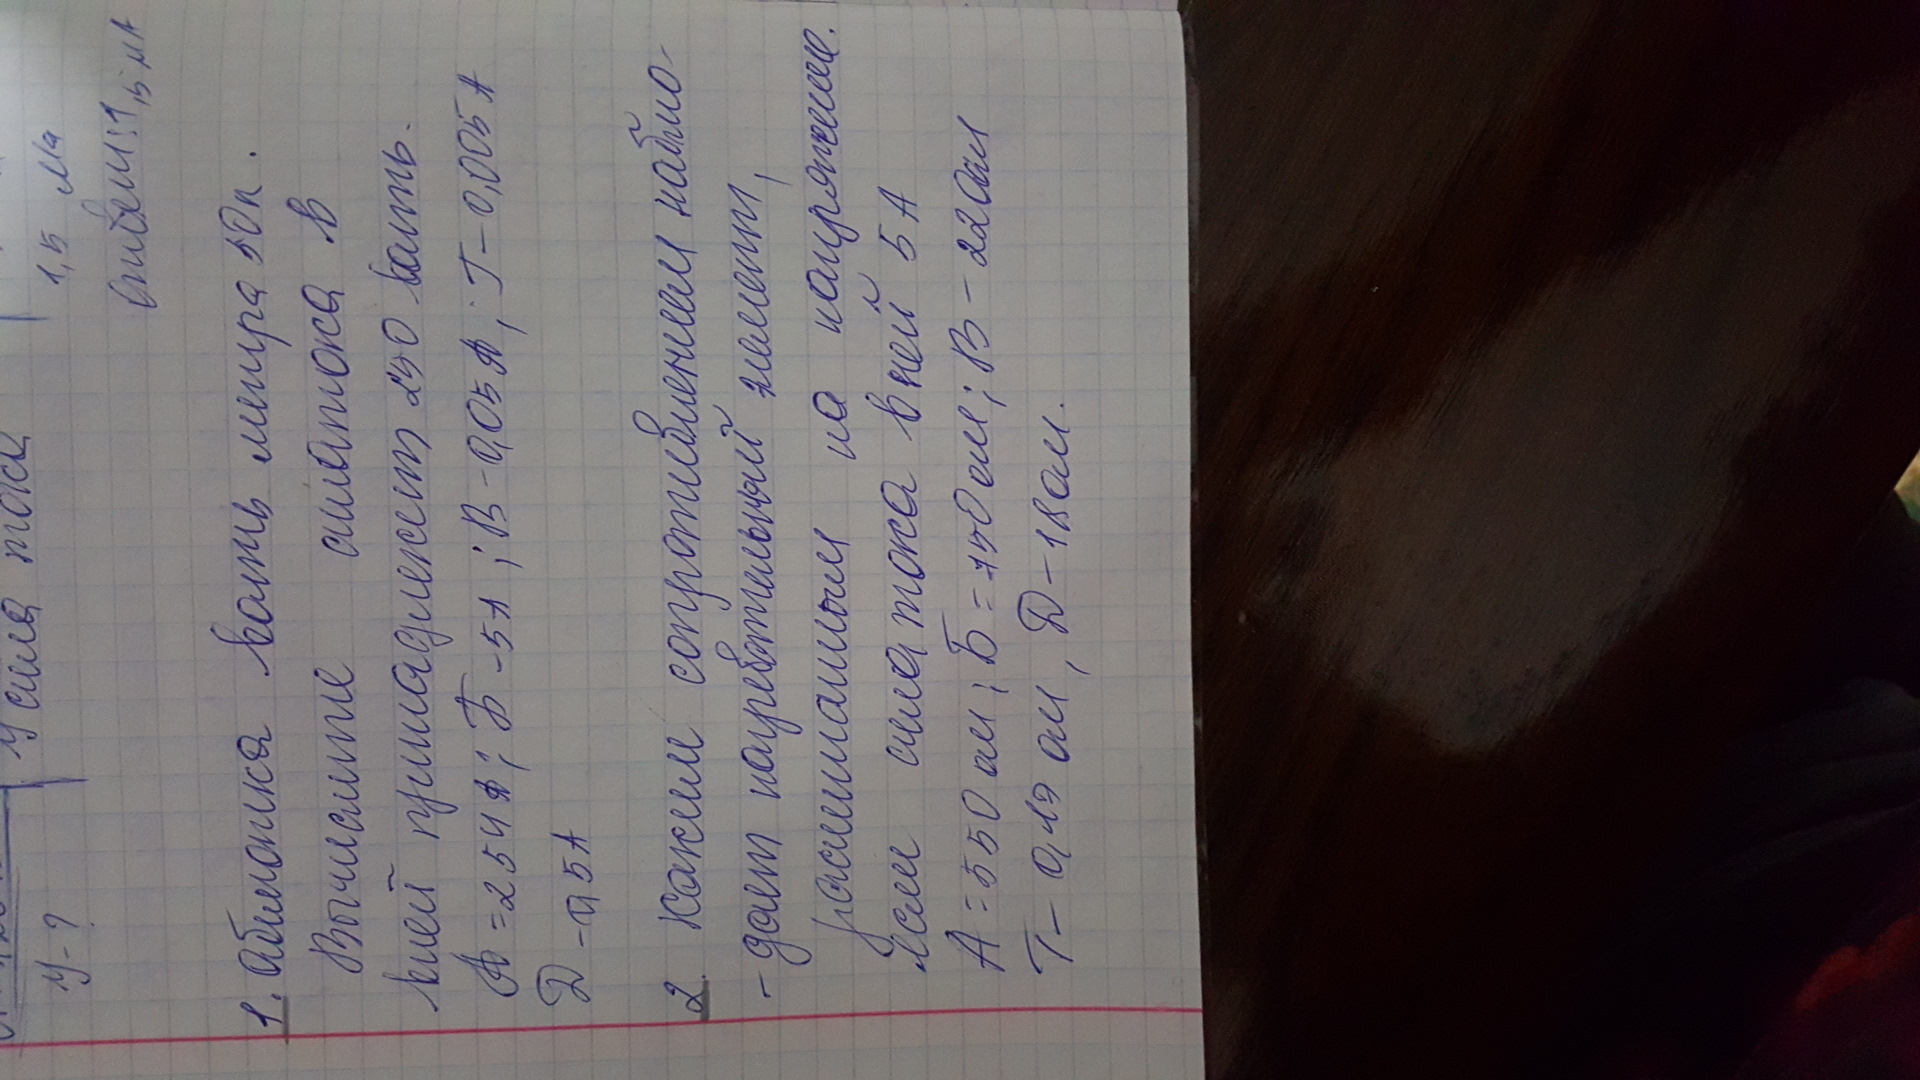 У сила тока
У-?
1,5 Ма
ответ:1,5 мА
1. Обмотка вольть метра 50к.
Вычислите сила тока в
вней принадлежит 250 вольть.
А = 254 А; Б - 5А; В - 0,05 А; Г - 0,005 А
Д - 0,5 А
2. Каким сопротивлением наблю-
- дает нагревательный элемент,
на напряжение.
если сила тока в ней 5 А
А = 550 ом; Б = 750 ом; В - 220 ом
Г - 0,17 ом, Д - 18 ом.